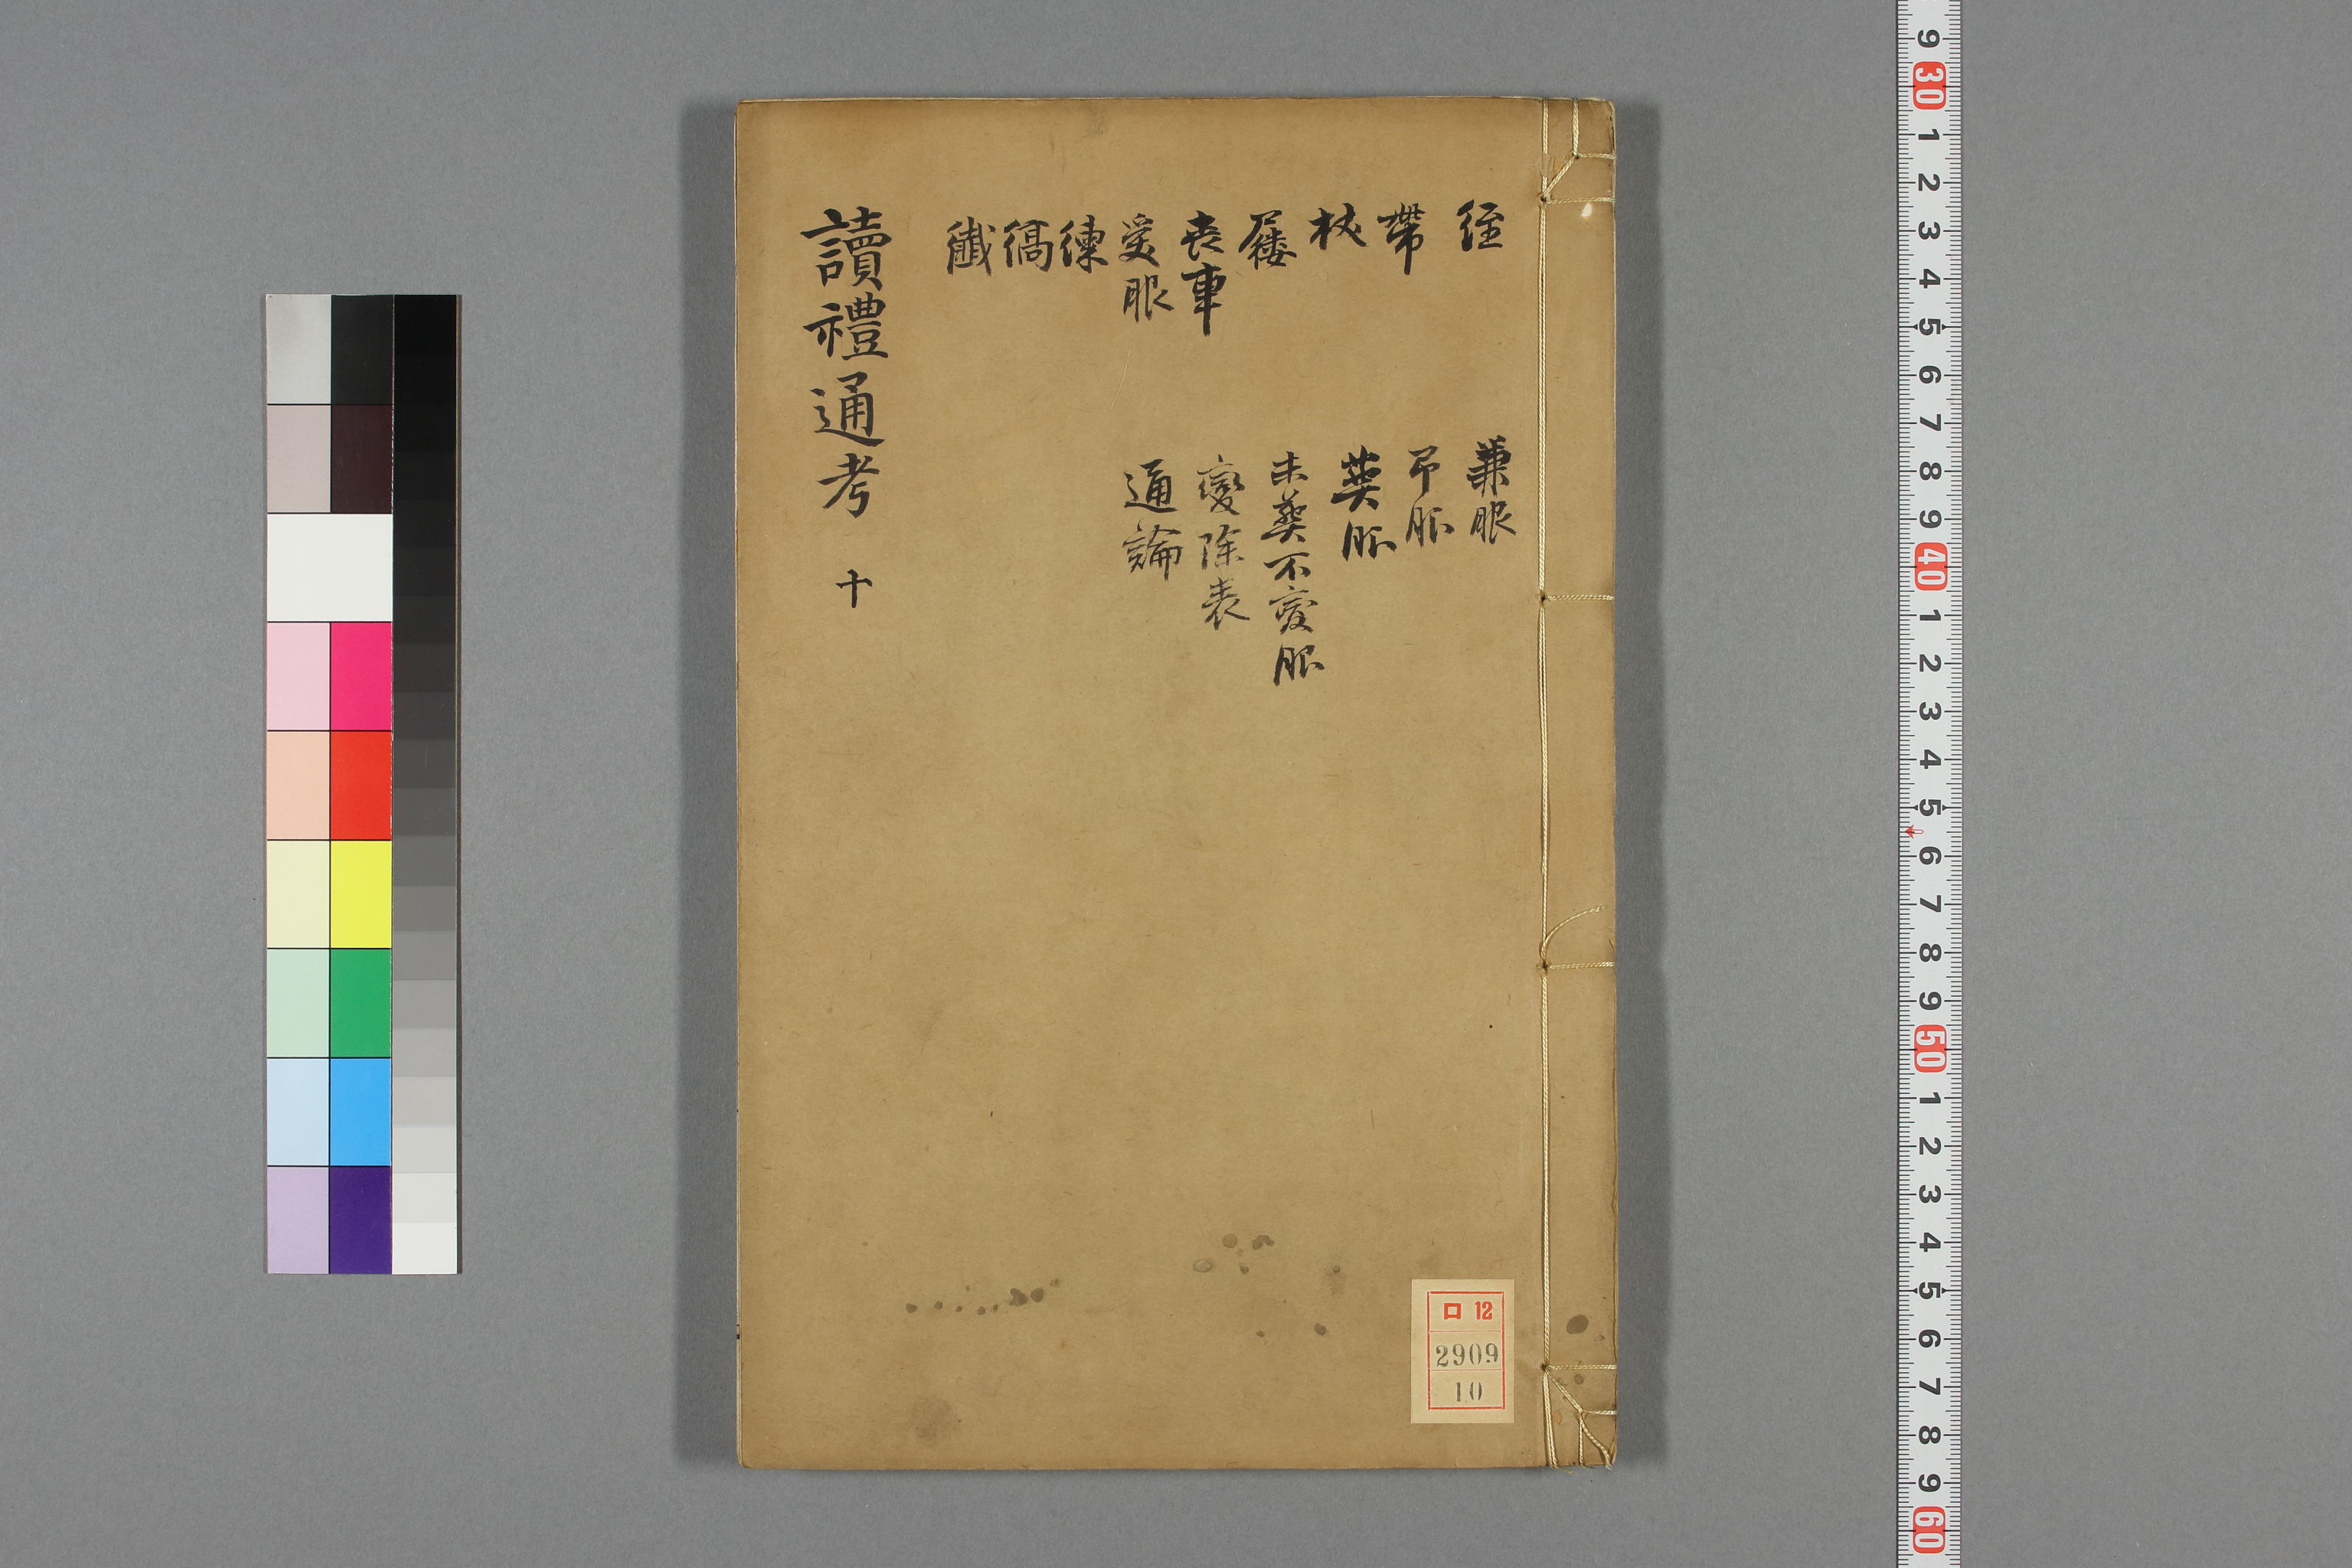 絰
帶
杖
屨
喪車
受服
練
縞
纖
兼服
弔服
葬服
未葬不變服
變除表
通論
讀禮通考 十
ロ 12
2909
10
9 30 1 2 3 4 5 6 7 8 9 40 1 2 3 4 5 6 7 8 9 50 1 2 3 4 5 6 7 8 9 60